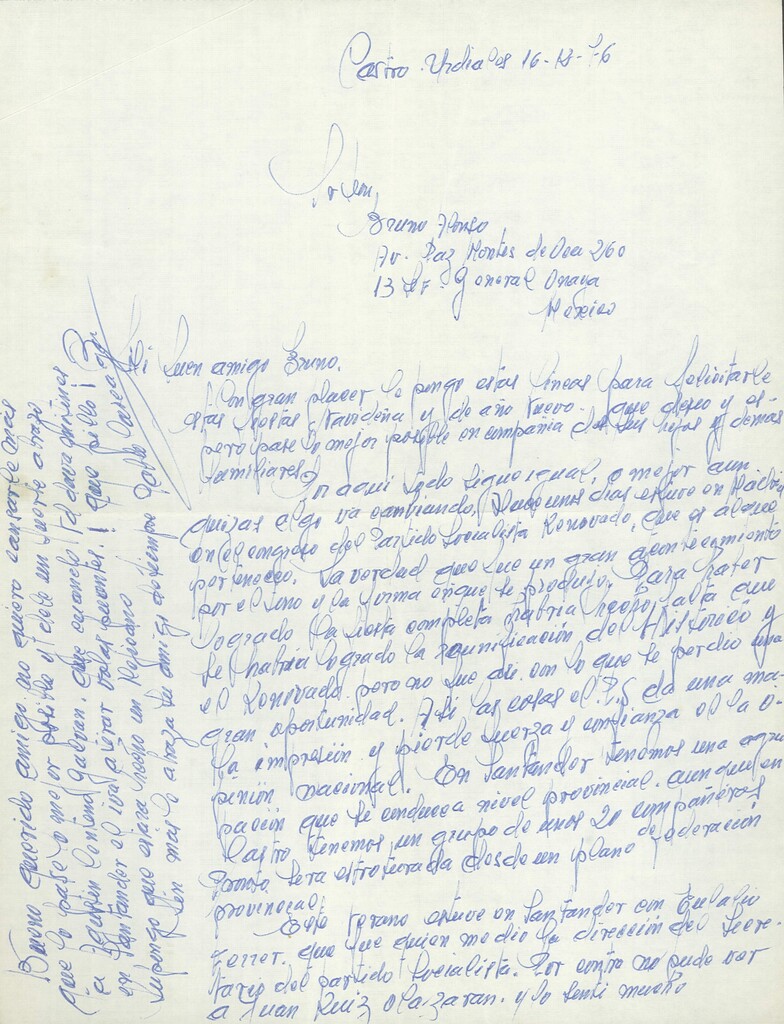 Castro-Urdiales 16-12-76
Bruno Alonso
Av. Paz Montes de Oca 260
13 D.F. General Anaya
Mexico
Mi buen amigo Bruno.
Con gran placer le pongo estas lineas para felicitarle
estas fiestas Navideña y de año nuevo. que deseo y es-
pero pase lo mejor posible en compañia de sus hijos y demas
familiares.
Por aqui todo sigue igual, o mejor aun
quizas algo va cambiando, Hace unos dias estuve en Madrid
en el congreso del Partido Socialista Renovado, que es al que
pertenezco. La verdad que fue un gran acontecimiento
por el sino y la forma en que se produjo. Para haber
logrado la fiesta completa habria hecho falta que
se habria logrado la reunificación del Historico y
el Renovado. pero no fue asi. con lo que se perdio una
gran oportunidad. Asi las cosas el P.S da una ma-
la impresión y pierde fuerza y confianza en la o-
pinión nacional. En Santander tenemos una agru
pación que se conduce a nivel provincial. aunque en
Castro tenemos, un grupo de unos 20 compañeros
Pronto sera estructurada desde un plano de federación
provincial.
Este verano estuve en Santander con Eulalio
Ferrer. que fue quien me dio la dirección del Secre-
tario del partido Socialista. Por contra no pude ver
a Juan Ruiz Olazaran. y lo senti mucho
Bueno querido amigo no quiero cansarle mas
que lo pase lo mejor posible y dele un fuerte abrazo
a Agustin Centeno Galvan. que cuando
en Santander el iva a tirar volas puentes. ¡ que pillo !
Supongo que estara hecho un Mejicano
Sin mas le abraza su amigo de siempre Pablo